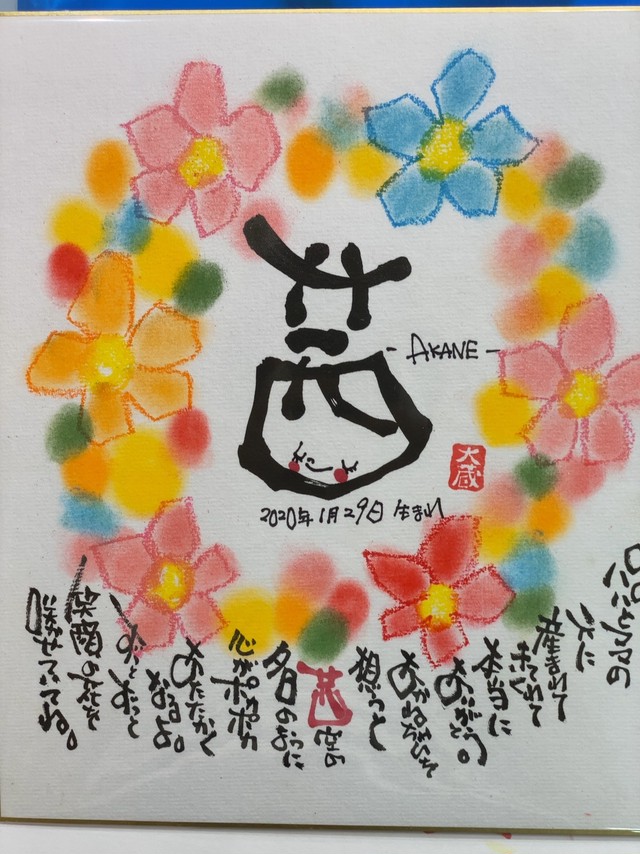 茜
- AKANE -
大蔵
2020年1月29日 生まれ
パパとママの
元に
産まれて
きてくれて
本当に
ありがとう。
あかね
想うと
茜空の
名のように
心がポカポカ
あたたかく
なるよ。
ずっとずっと
笑顔の花を
咲かせていてね。